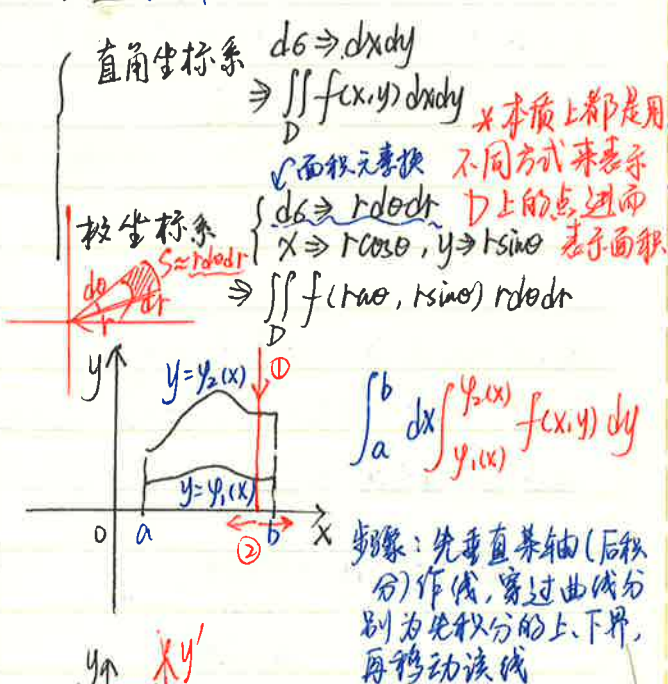 直角坐标系 dσ⇒dxdy
⇒∬f(x,y)dxdy
D
*本质上都是用
不同方式来表示
D上的点进而
表示面积
↙面积元素换
极坐标系 { dσ⇒rdθdr
x⇒rcosθ, y⇒rsinθ
⇒∬f(rcosθ, rsinθ)rdθdr
D
S≈rdθdr
dθ
dr
r
y
y=φ₂(x)
①
y=φ₁(x)
0 a b x
②
∫ₐᵇdx∫_{φ₁(x)}^{φ₂(x)}f(x,y)dy
步骤：先垂直某轴(后积
分)作线,穿过曲线分
别为先积分的上、下界,
再移动该线
y
y'